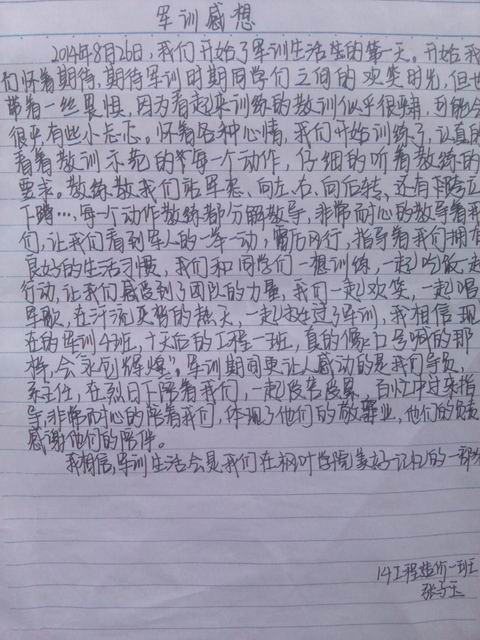 军训感想
2014年8月26日,我们开始了军训生活的第一天。开始我
们怀着期待,期待军训时期同学们之间的欢笑时光,但也
带着一丝畏惧,因为看起来训练的教训似乎很严肃,可能会
很严有些小忐忑。怀着各种心情,我们开始训练了,认真的
看着教训示范的每一个动作,仔细的听着教练的
要求。教练教我们站军姿、向左、右、向后转、还有跨立
下蹲…,每个动作教练都分解教导,非常耐心的教导着我
们,让我们看到军人的一举一动,雷厉风行,指导着我们拥有
良好的生活习惯,我们和同学们一起训练,一起吃饭一起
行动,让我们感受到了团队的力量,我们一起欢笑,一起唱
军歌,在汗流夹背的热天,一起度过了军训,我相信现
在的军训4班,十天后的工程一班,真的像口号喊的那
样,会“永创辉煌”。军训期间更让人感动的是我们导员,
系主任,在烈日下陪着我们,一起受苦受累,百忙中过来指
导,非常耐心的陪着我们,体现了他们的敬业,他们的负责
感谢他们的陪伴。
我相信,军训生活会是我们在枫叶学院美好记忆的一部分
14工程造价一班